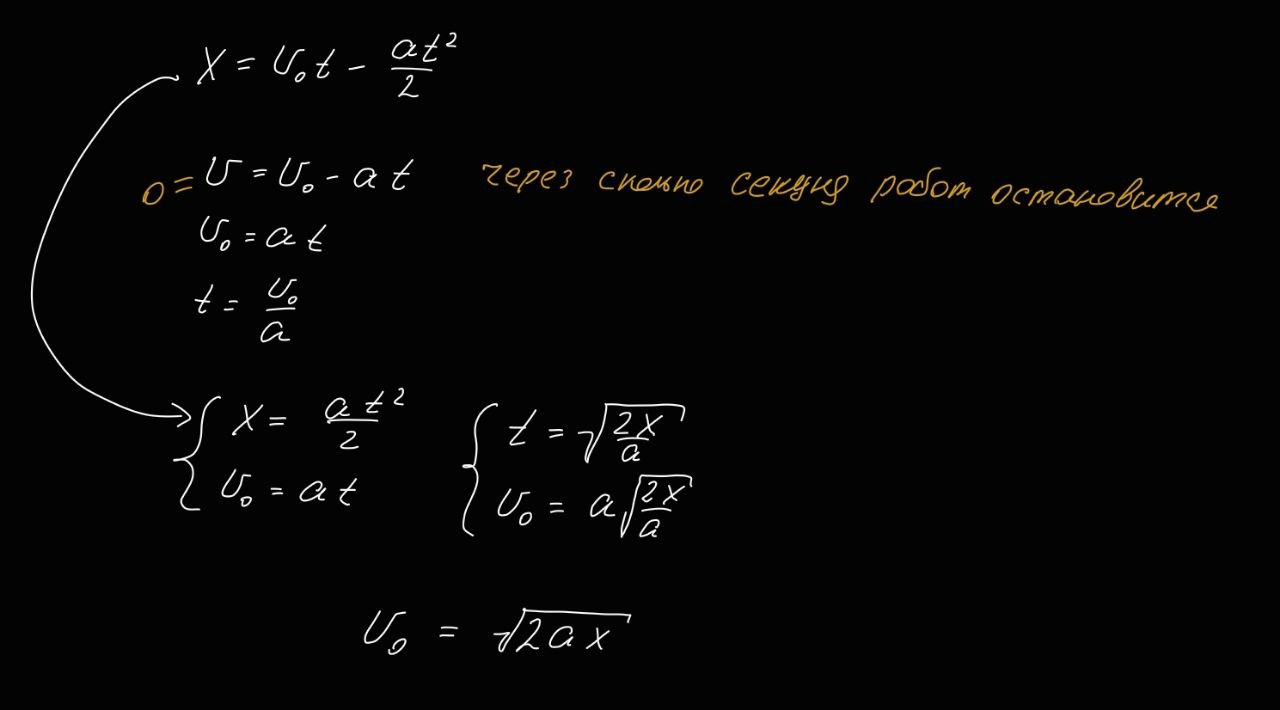 X = υ₀t - at²/2
0 = υ = υ₀ - at через сколько секунд робот остановится
υ₀ = at
t = υ₀/a
{ X = at²/2 { t = √(2X/a)
υ₀ = at υ₀ = a√(2X/a)
υ₀ = √(2ax)